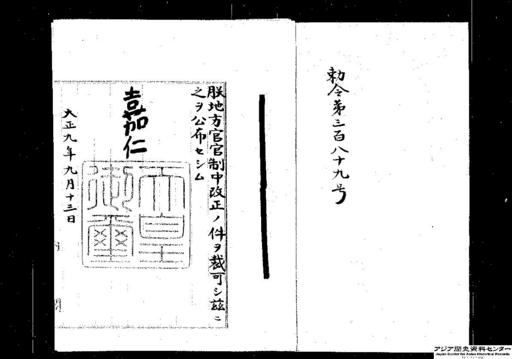 勅令第三百八十九号
朕地方官官制中改正ノ件ヲ裁可シ茲ニ
之ヲ公布セシム
嘉仁
天皇
御璽
大正九年九月十三日
アジア歴史資料センター
Japan Center for Asian Historical Records